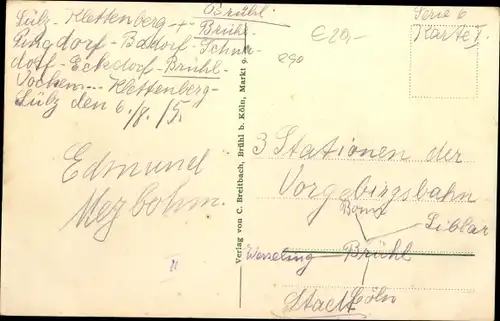 Brühl.
Sülz - Klettenberg - + Brühl -
Pingsdorf - Badorf - Schwa-
dorf - Eckdorf - Brühl -
Vochem... Klettenberg -
Sülz den 6./8./5.
Edmund
Mezbohm.
Verlag von C. Breitbach, Brühl b. Köln, Markt 9.
€20,-
290
Serie 6
Karte I.
3 Stationen der
Vorgebirgsbahn
Bonn
Liblar
Wesseling Brühl
Stadt Köln